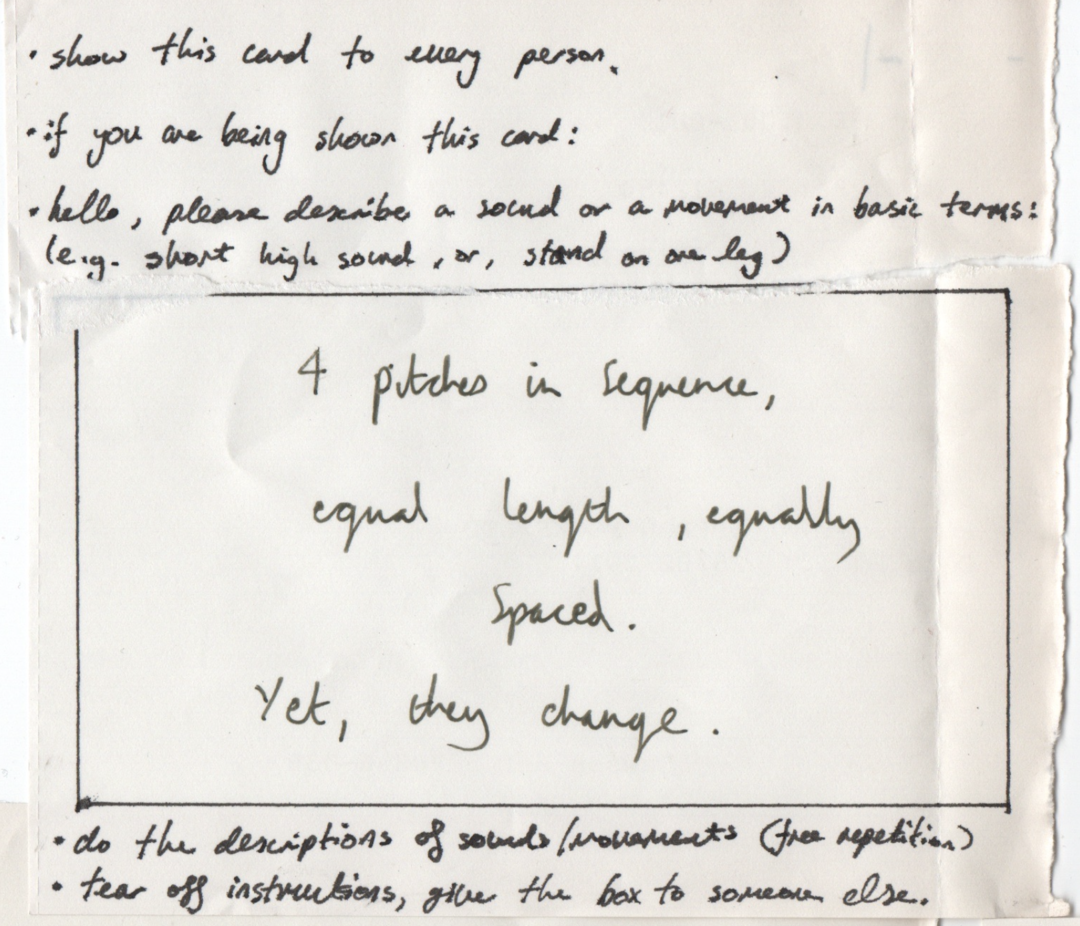 • show this card to every person.
• if you are being shown this card:
• hello, please describe a sound or a movement in basic terms:
(e.g. short high sound, or, stand on one leg)
4 pitches in sequence,
equal length, equally
spaced.
Yet, they change.
• do the descriptions of sounds/movements (free repetition)
• tear off instructions, give the box to someone else.